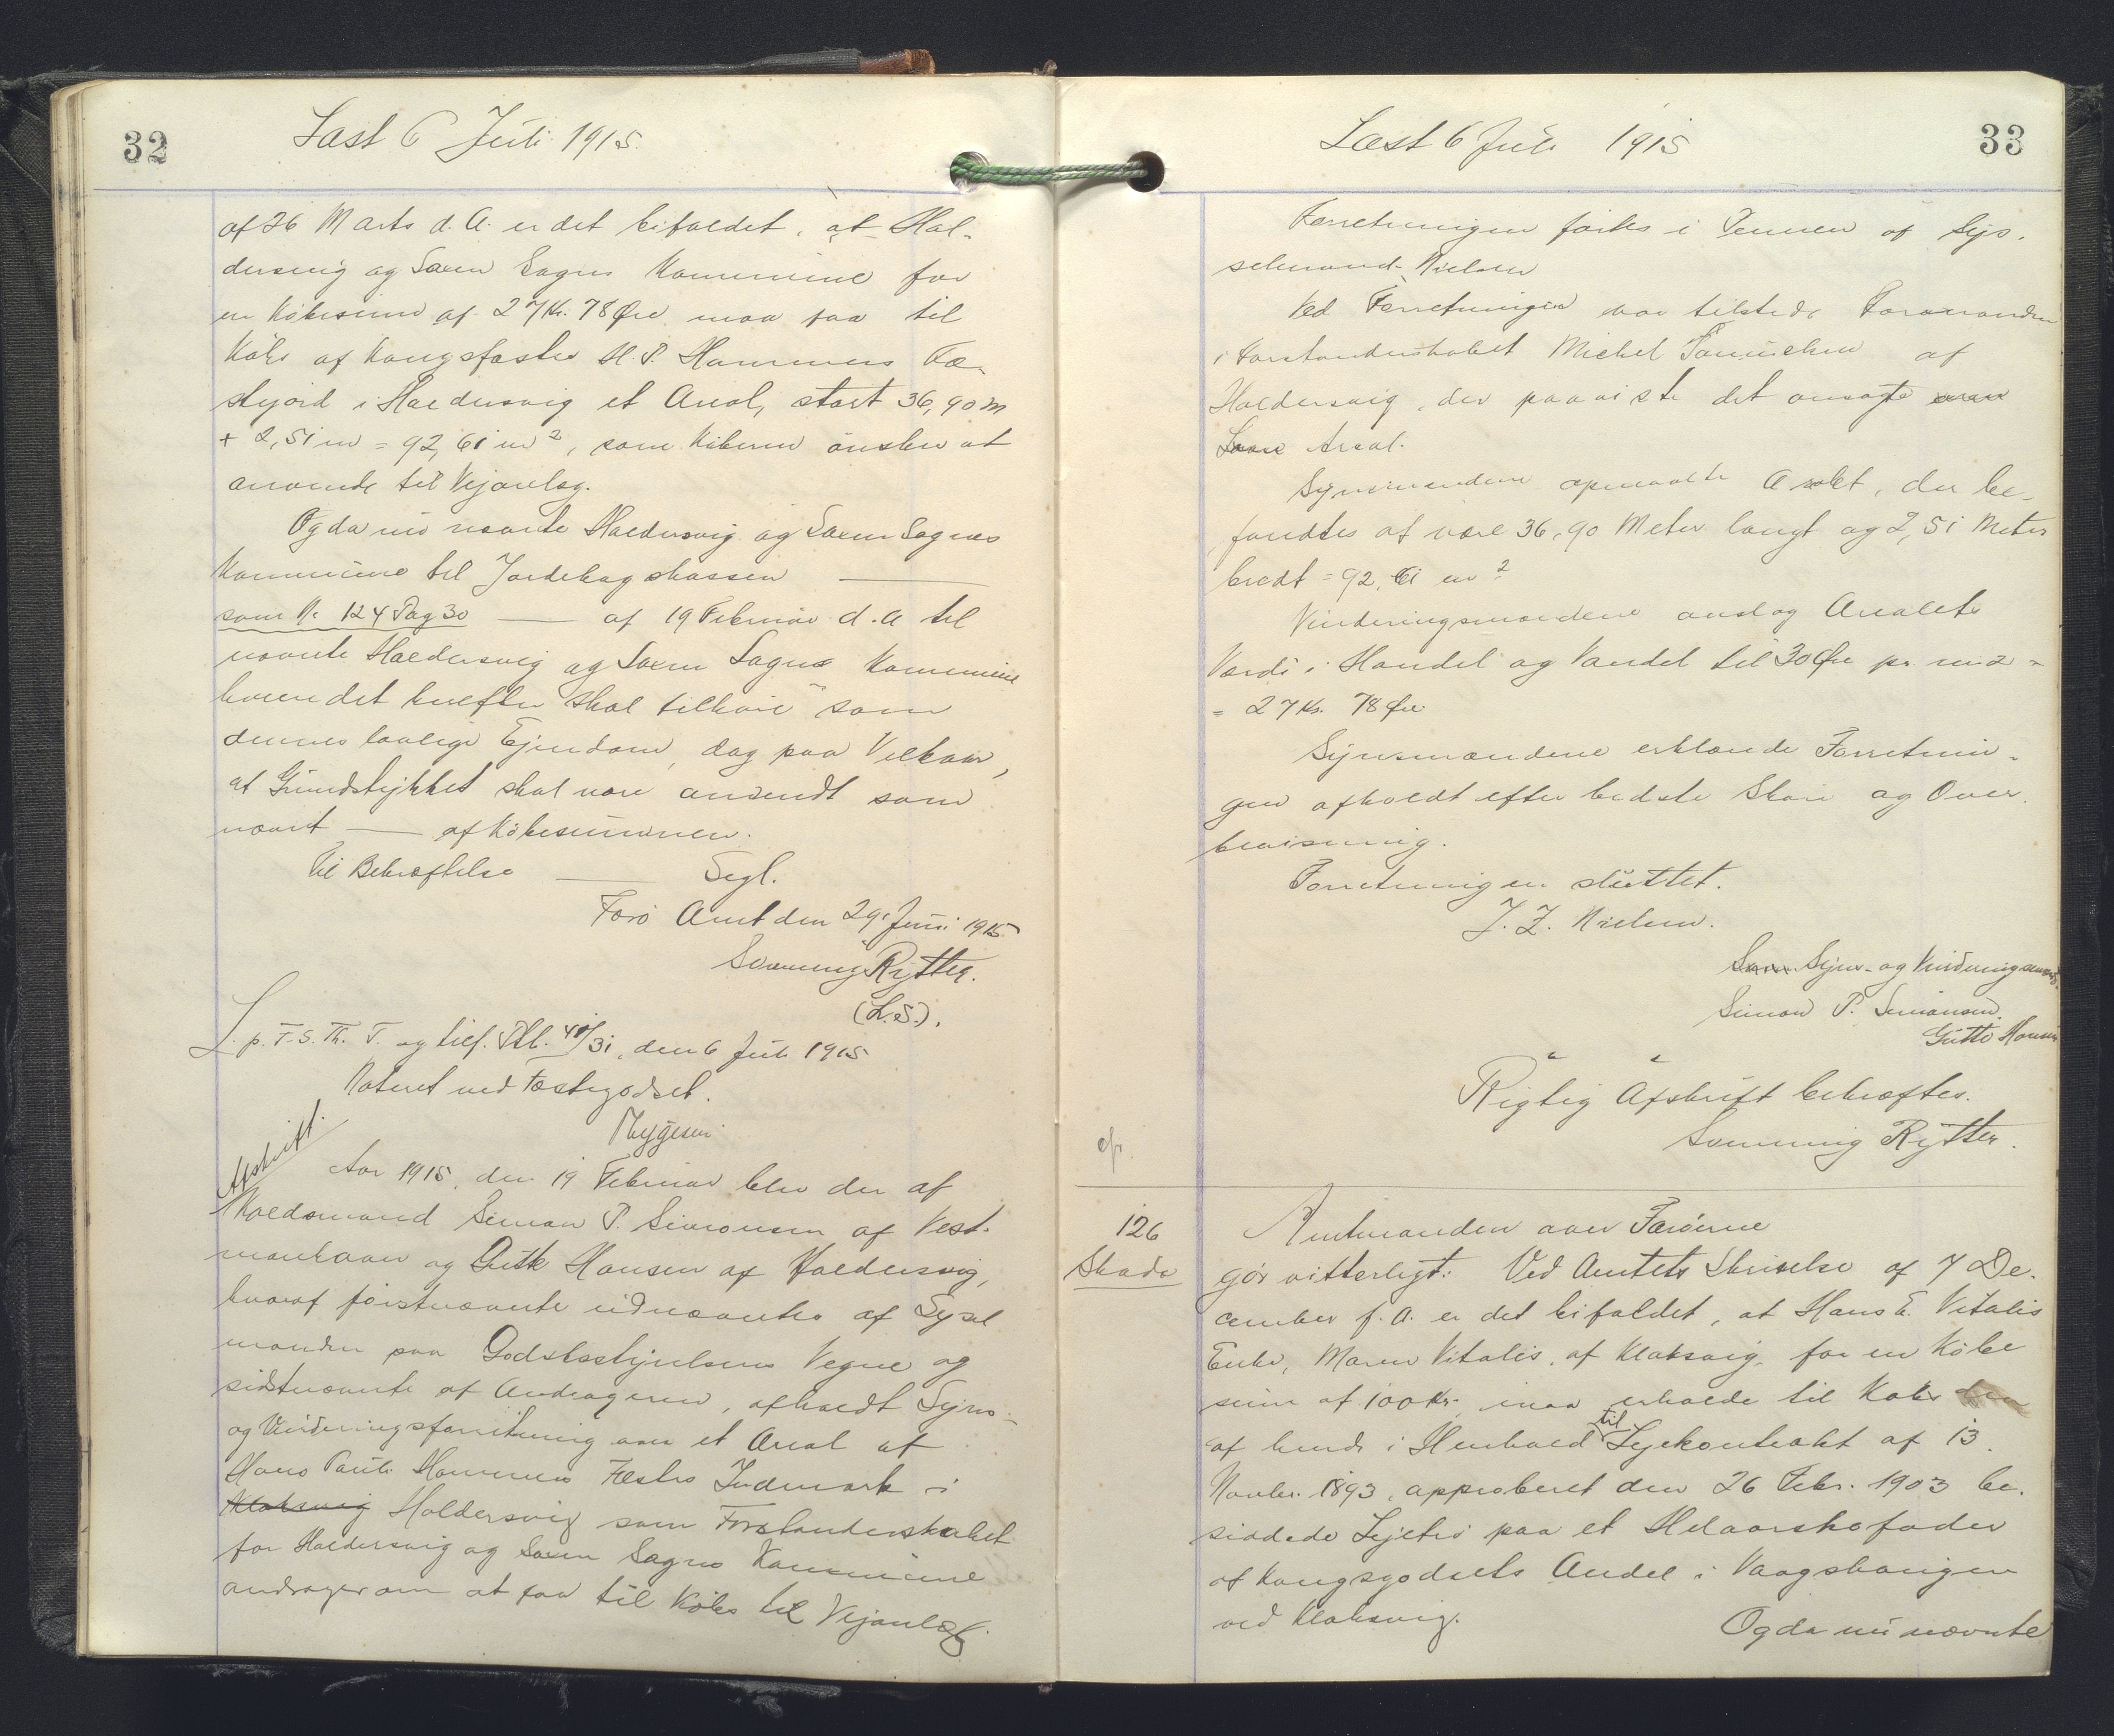 32
Læst 6 Juli 1915.
af 26 Marts d. A. er det bifaldet, at Hal-
dersvig og Saxen Sogns Kommune for
en Købesum af 27 Kr. 78 Øre maa faa til
Købs af Kongsfæster H. P. Hammers Fæ-
stejord i Haldersvig et Areal, stort 36,90 m
+ 2,51 m = 92,61 m², som Køberen ønsker at
anvende til Vejanlæg.
Og da nu nævnte Haldersvig og Saxen Sogns
Kommune til Jordebogskassen ———
som Nr 124 Pag 30 —— af 19 Februar d. A til
nævnte Haldersvig og Saxen Sogns Kommune
hvem det herefter skal tilhøre som
dennes lovlige Ejendom, dog paa Vilkaar,
at Grundstykket skal være anvendt som
nævnt —— af Købesummen.
Til Bekræftelse —— Segl.
Færø Amt den 29. Juni 1915
Svenning Rytter.
(L.S.).
L. p. F. S. Th. T. og tilf. Ptb. 40/31, den 6 Juli 1915
Noteret ved Fæstegodset.
Mygesen
Afskrift.
Aar 1915, den 19 Februar blev der af
Voldsmand Simon P. Simonsen af Vest-
manhavn og Gutte Hansen af Haldersvig,
hvoraf førstnævnte udnævntes af Syssel
manden paa Godsbestyrelsens Vegne og
sidstnævnte af Andrageren, afholdt Syns-
og Vurderingsforretning over et Areal af
Hans Pauli Hammers Fæstes Indmark i
Klaksvig Haldersvig som Forstanderskabet
for Haldersvig og Saxen Sogns Kommune
andrager om at faa til Købs til Vejanlæg.
33
Læst 6 Juli 1915
Forretningen førtes i Pennen af Sys-
selmand Nielsen
Ved Forretningen var tilstede Formanden
i Forstanderskabet Michel Samuelsen af
Haldersvig, der paaviste det ansøgte
Areal.
Synsmændene opmaalte Arealet, der be-
fandtes at være 36,90 Meter langt og 2,51 Meter
bredt = 92,61 m²
Vurderingsmændene anslog Arealets
Værdi i Handel og Vandel til 30 Øre pr m2 =
= 27 Kr. 78 Øre
Synsmændene erklærede Forretnin-
gen afholdt efter bedste Skøn og Over-
bevisning.
Forretningen sluttet.
J. Z. Nielsen.
Som Syns- og Vurderingsmænd.
Simon P. Simonsen.
Gutte Hansen
Rigtig Afskrift bekræftes.
Svenning Rytter.
op.
126
Skøde
Amtmanden over Færøerne
gør vitterligt: Ved Amtets Skrivelse af 7 De-
cember f. A. er det bifaldet, at Hans E. Vitalis
Enke, Maren Vitalis, af Klaksvig, for en Købe
sum af 100 Kr. maa erholde til Købs den
af hende i Henhold til Lejekontrakt af 13.
Novbr. 1893, approberet den 26 Febr. 1903 be-
siddede Lejeret paa et Helaarskofoder
af Kongsgodsets Andel i Vaagshaugen
ved Klaksvig.
Og da nu nævnte